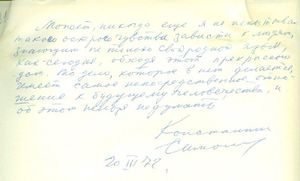 Может, никогда еще я не испытывал
такого острого чувства зависти к людям,
как сегодня, обходя этот прекрасный
дом. То дело, которое в нем делается,
имеет самое непосредственное отно-
шение к будущему человечества, и
об этом нельзя не думать
Константин
Симонов
20 III 78